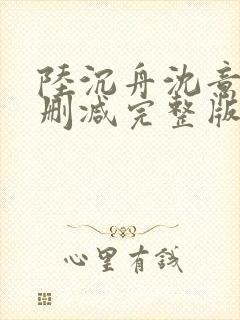 陸沉舟沈意
删减完整版
心里有錢